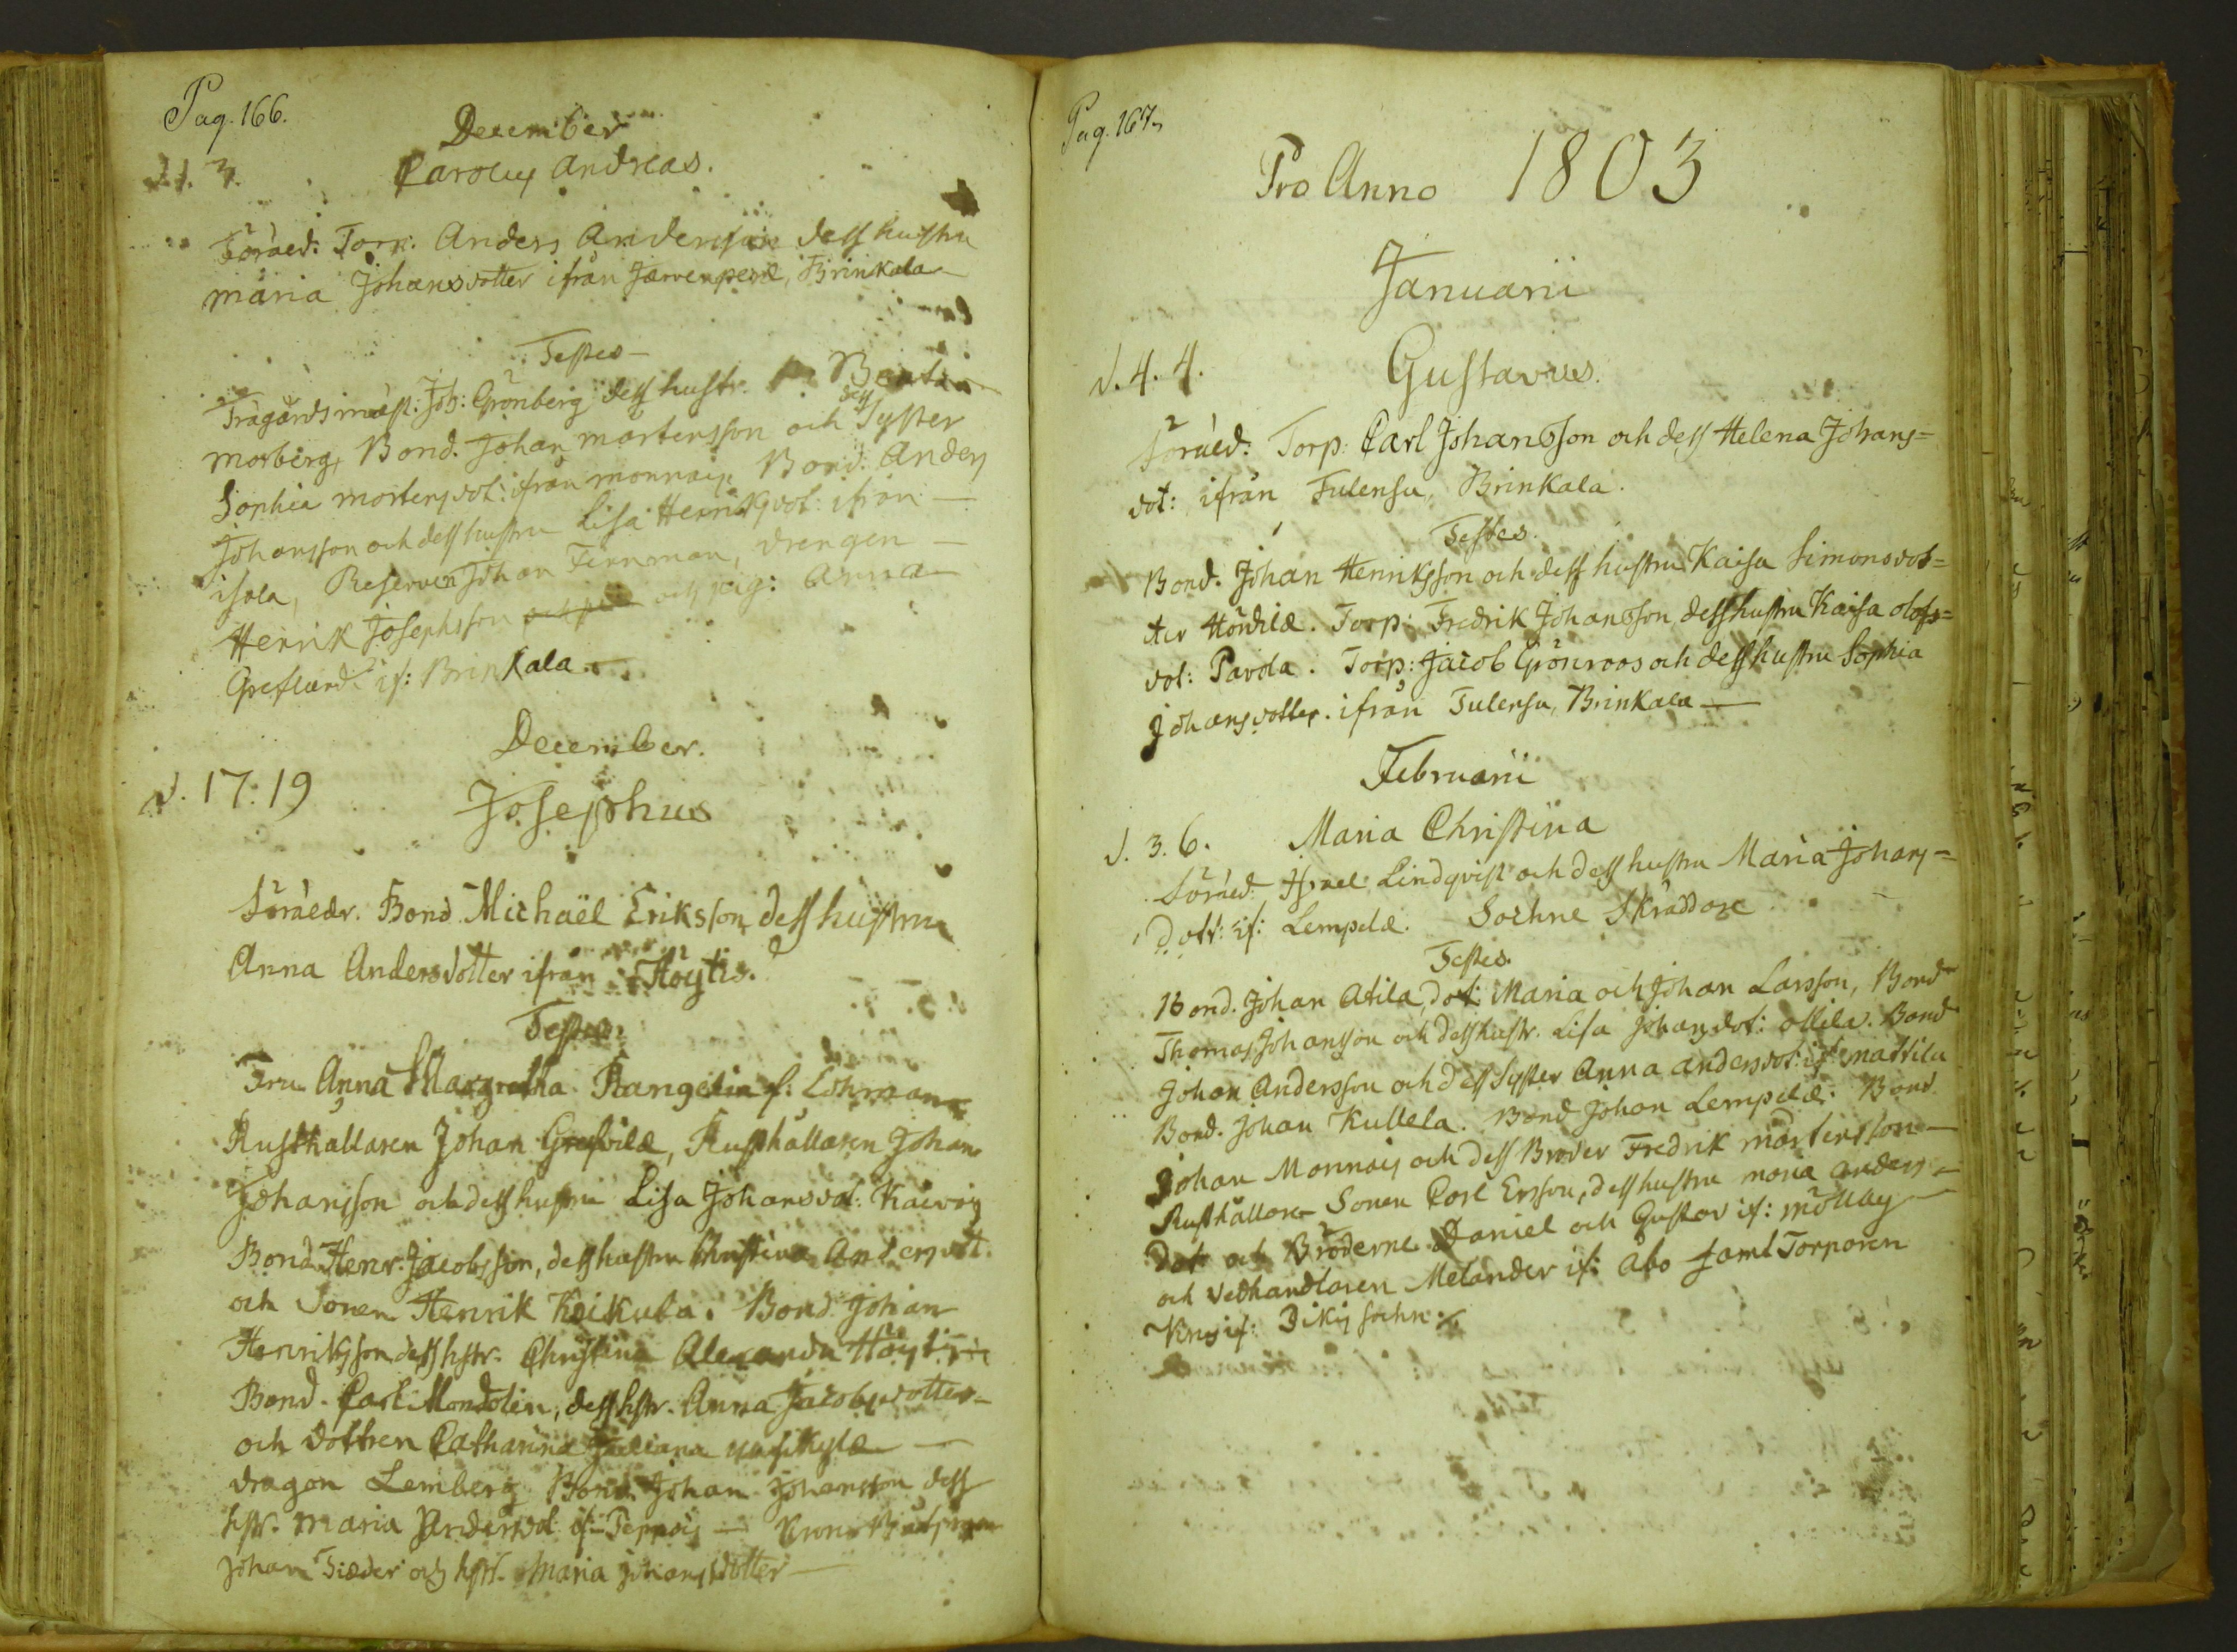 Pag. 166.
December
d. 1. 3.
Carolus Andreas.
Föräld: Torp: Anders Andersson dess hustru
Maria Johansdotter ifrån Jarvenperæ, Brinkala
Testes
Trägårdsmæst: Joh: Grönberg dess hustr. Beata
dess
Morberg, Bond. Johan Mårtensson och Syster
Sophia Mortensdot: ifrån Monnais, Bond. Anders
Johansson och dess hustru Lisa Henriksdot: ifrån
isola, Reserven Johan Fernman, drengen
Henrik Josephsson och pig: Anna
Greflund if: Brinkala.
December.
d. 17. 19
Josephus
Föräldr. Bond Michaël Eriksson dess hustru
Anna Andersdotter ifrån Höytis.
Testes
Fru Anna Margretha Rangelin f: Lohman
Rusthållaren Johan Grefvilæ, Rusthållaren Johan
Johansson och dess hustru Lisa Johansdot: Kaivoig
Bond Henr. Jacobsson, dess hustru Christina Andersdot.
och Sonen Henrik Koikula. Bond Johan
Henriksson dess hstr. Christina Alexandri Höytis
Bond. Carl Mondolin, dess hstr. Anna Jacobsdotter
och dottren Catharina Juliana
dragon Lemberg Bond. Johan Johansson dess
hstr. Maria Andersdot if: Teppois
Johan Tiæder och hstr. Maria Johansdotter
Pag. 167.
Pro Anno 1803
Januarii
d. 4. 4.
Gustavus.
Föräld: Torp: Carl Johansson och dess Helena Johans=
dot: ifrån Tulensu, Brinkala.
Testes.
Bond. Johan Henriksson och dess hustru Kaisa Simonsdot=
ter Höndilæ. Torp: Fredrik Johansson dess hustru Kaisa olofs=
dot: Pavola. Torp: Jacob Grönroos och dess hustru Sophia
Johansdotter. ifrån Tulensu, Brinkala
Februarii
d. 3. 6.
Maria Christina
Föräld Israel Lindqvist och dess hustru Maria Johans=
Dott: if: Lempelæ. Sochne Skräddare
Testes.
Bond. Johan Atila, dot: Maria och Johan Larsson, Bond
Thomas Johansson och dess hustr. Lisa Johansdot: ollila. Bond
Johan Andersson och dess Syster Anna andersdot: if: mattila
Bond. Johan Kullela. Bond Johan Lempelæ. Bond
Johan Monnois och dess Broder Fredrik mårtensson
Rusthållare Sonen Carl Ersson, dess hustru maria anders
dot och Bröderne Daniel och Gustav if: möllby
och vedhandlaren Melander if: Åbo samt Torparen
Krus if: Bikis sochn.